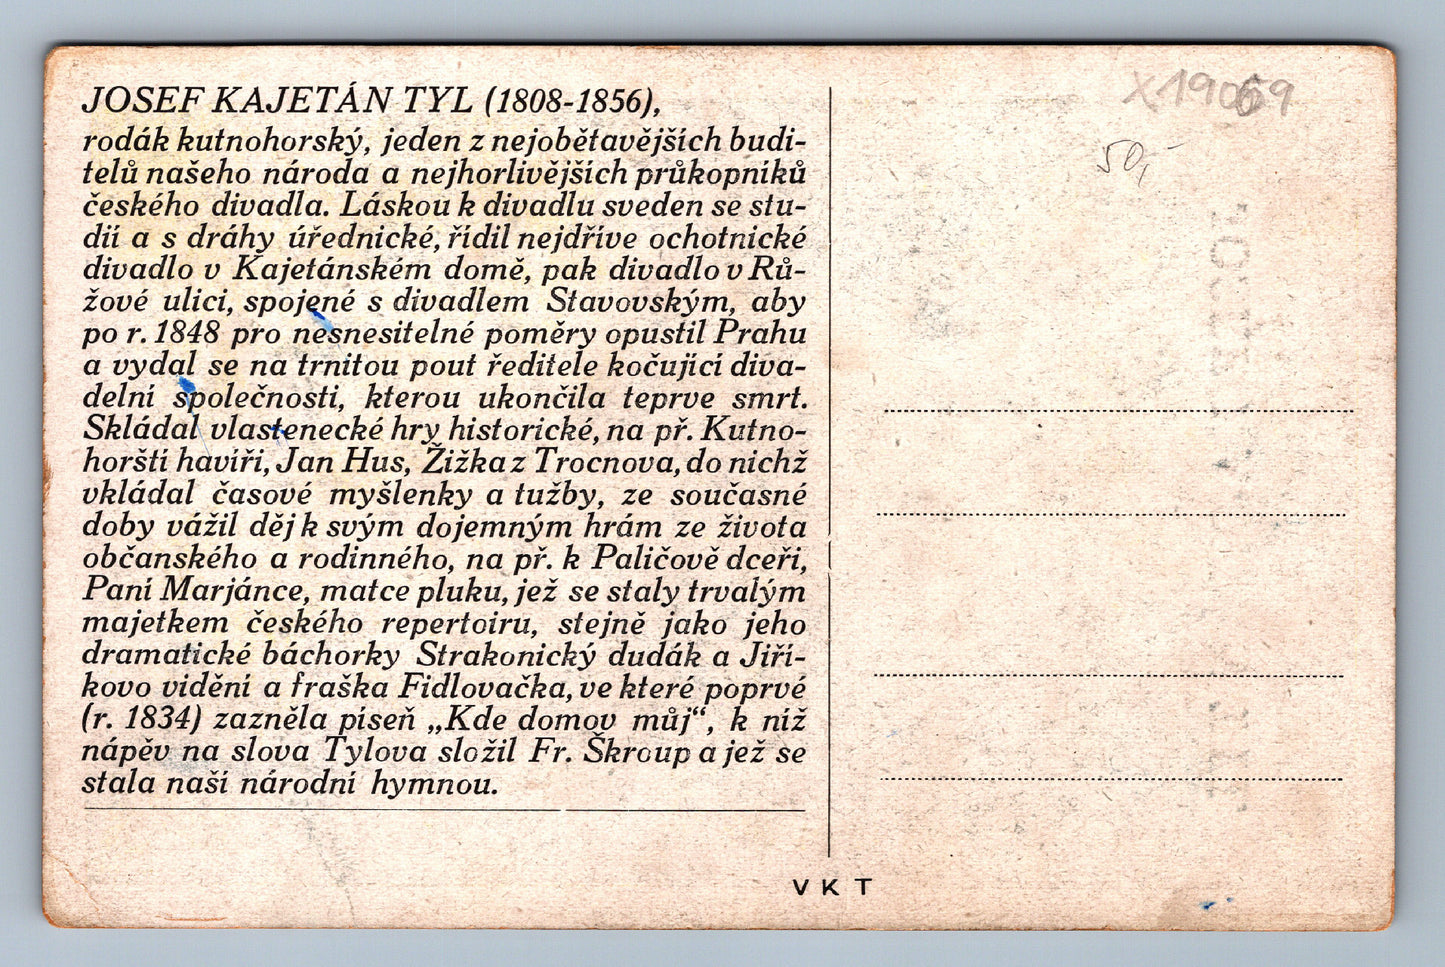 JOSEF KAJETÁN TYL (1808-1856),
rodák kutnohorský, jeden z nejobětavějších budi-
telů našeho národa a nejhorlivějších průkopníků
českého divadla. Láskou k divadlu sveden se stu-
dií a s dráhy úřednické, řídil nejdříve ochotnické
divadlo v Kajetánském domě, pak divadlo v Rů-
žové ulici, spojené s divadlem Stavovským, aby
po r. 1848 pro nesnesitelné poměry opustil Prahu
a vydal se na trnitou pouť ředitele kočující diva-
delní společnosti, kterou ukončila teprve smrt.
Skládal vlastenecké hry historické, na př. Kutno-
horští havíři, Jan Hus, Žižka z Trocnova, do nichž
vkládal časové myšlenky a tužby, ze současné
doby vážil děj k svým dojemným hrám ze života
občanského a rodinného, na př. k Paličově dceři,
Paní Marjánce, matce pluku, jež se staly trvalým
majetkem českého repertoiru, stejně jako jeho
dramatické báchorky Strakonický dudák a Jiří-
kovo vidění a fraška Fidlovačka, ve které poprvé
(r. 1834) zazněla píseň „Kde domov můj“, k níž
nápěv na slova Tylova složil Fr. Škroup a jež se
stala naší národní hymnou.
X19069
50,-
V K T